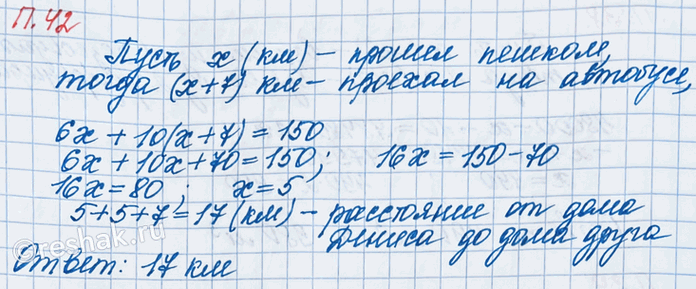 П.42
Пусть x (км) – прошел пешком,
тогда (x+7) км – проехал на автобусе,
6x + 10(x+7) = 150
6x + 10x + 70 = 150; 16x = 150 – 70
16x = 80 ; x = 5
5+5+7 = 17 (км) – расстояние от дома
Дениса до дома друга
Ответ: 17 км
©reshak.ru